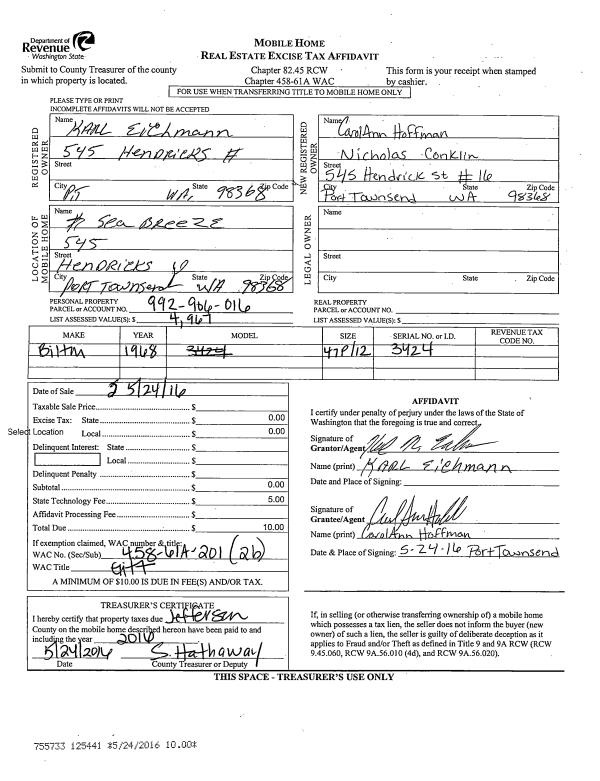 Department of
Revenue
Washington State
MOBILE HOME
REAL ESTATE EXCISE TAX AFFIDAVIT
Submit to County Treasurer of the county
in which property is located.
Chapter 82.45 RCW
Chapter 458-61A WAC
This form is your receipt when stamped
by cashier.
FOR USE WHEN TRANSFERRING TITLE TO MOBILE HOME ONLY
PLEASE TYPE OR PRINT
INCOMPLETE AFFIDAVITS WILL NOT BE ACCEPTED
REGISTERED OWNER
Name KARL Eichmann
545 HENDRICKS #
Street
City PT State WA, 98368 Zip Code
NEW REGISTERED OWNER
Name CarolAnn Hoffman
Nicholas Conklin
Street 545 Hendrick St # 16
City Port Townsend State WA Zip Code 98368
LOCATION OF MOBILE HOME
Name # Sea BREEZE
545
Street HENDRICKS
City PORT Townsend State WA Zip Code 98368
LEGAL OWNER
Name
Street
City State Zip Code
PERSONAL PROPERTY
PARCEL or ACCOUNT NO. 992-906-016
LIST ASSESSED VALUE(S): $ 4,967
REAL PROPERTY
PARCEL or ACCOUNT NO.
LIST ASSESSED VALUE(S): $
MAKE YEAR MODEL SIZE SERIAL NO. or I.D. REVENUE TAX CODE NO.
1968 3424 47P/12 3424
Date of Sale 5/24/16
Taxable Sale Price $
Excise Tax: State $ 0.00
Select Location Local $ 0.00
Delinquent Interest: State $
Local $
Delinquent Penalty $
Subtotal $ 0.00
State Technology Fee $ 5.00
Affidavit Processing Fee $
Total Due $ 10.00
If exemption claimed, WAC number & title:
WAC No. (Sec/Sub) 458-61A-201 (2b)
WAC Title Gift
A MINIMUM OF $10.00 IS DUE IN FEE(S) AND/OR TAX.
AFFIDAVIT
I certify under penalty of perjury under the laws of the State of
Washington that the foregoing is true and correct.
Signature of
Grantor/Agent
Name (print) KARL Eichmann
Date and Place of Signing:
Signature of
Grantee/Agent
Name (print) CarolAnn Hoffman
Date & Place of Signing: 5-24-16 Port Townsend
TREASURER'S CERTIFICATE
I hereby certify that property taxes due Jefferson
County on the mobile home described hereon have been paid to and
including the year 2016
5/24/2016 S. Hathaway
Date County Treasurer or Deputy
If, in selling (or otherwise transferring ownership of) a mobile home
which possesses a tax lien, the seller does not inform the buyer (new
owner) of such a lien, the seller is guilty of deliberate deception as it
applies to Fraud and/or Theft as defined in Title 9 and 9A RCW (RCW
9.45.060, RCW 9A.56.010 (4d), and RCW 9A.56.020).
THIS SPACE - TREASURER'S USE ONLY
755733 125441 *5/24/2016 10.00*